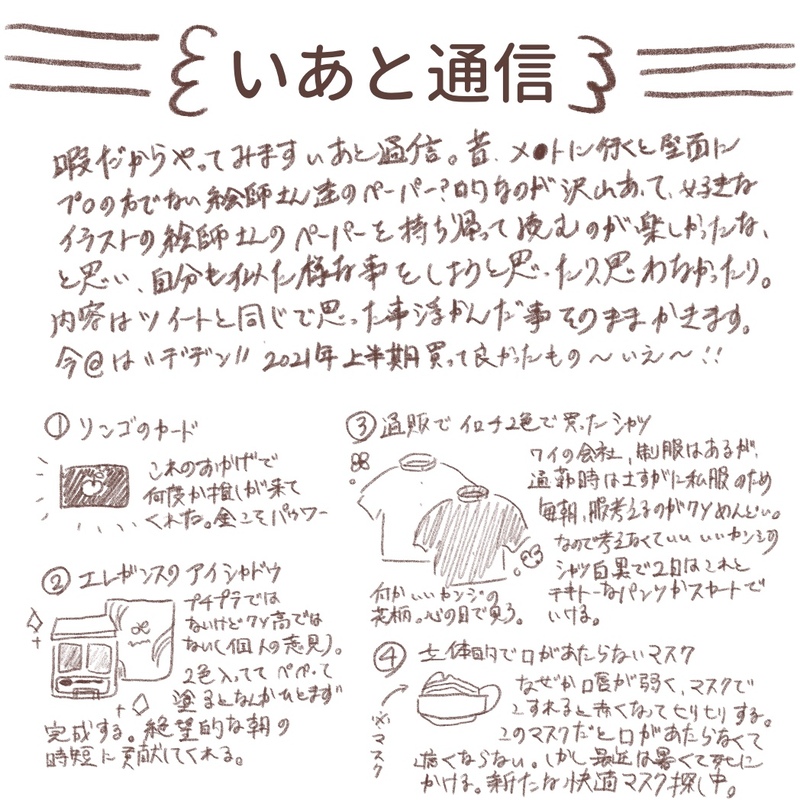 いあと通信
暇だからやってみますいあと通信。昔、メ●トに行くと壁面に
プロの方でない絵師さん達のペーパー?的なのが沢山あって、好きな
イラストの絵師さんのペーパーを持ち帰って読むのが楽しかったな、
と思い、自分も似た様な事をしようと思ったり思わなかったり。
内容はツイートと同じで思った事浮かんだ事そのままかきます。
今@は〃デデン〃 2021年上半期買って良かったもの〜いえ〜!!
① リンゴのカード
これのおかげで
何度か推しが来て
くれた。金こそパゥワー
② エレガンスのアイシャドウ
プチプラでは
ないけどクソ高では
ない(個人の意見)。
2色入ってて ペペって
塗るとなんかひとまず
完成する。絶望的な朝の
時短に貢献してくれる。
③ 通販で イロチ2色で買ったシャツ
ワイの会社、制服はあるが、
通勤時はさすがに私服のため
毎朝、服考えるのがクソめんどい。
なので考えなくていい いいカンジの
シャツ白黒で2日はこれと
テキトーなパンツかスカートで
いける。
何かいいカンジの
花柄。心の目で見ろ。
④ 立体的で口があたらないマスク
なぜか唇が弱く、マスクで
こすれると赤くなってヒリヒリする。
このマスクだと口があたらなくて
痛くならない。しかし最近は暑くて死に
かける。新たな快適マスク探し中。
※マスク